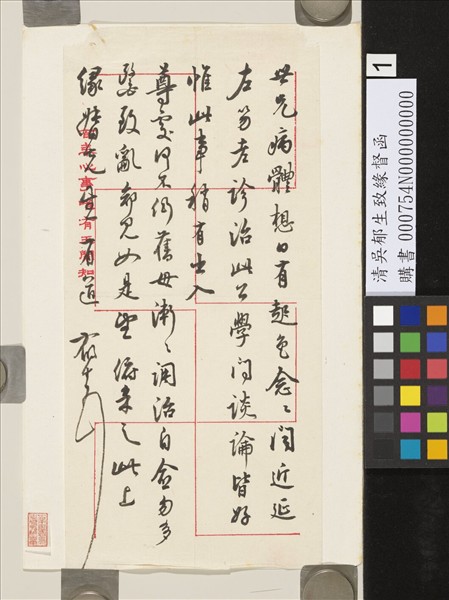 世兄病體想日有起色念念聞近延
左笏老診治此公學問談論皆好
惟此事稍有出入
尊處何不仍舊毋漸漸調治自愈勿多
醫致亂鄙見如是望俯采之此上
緣督先生有道
1
清吳郁生致緣督函
購書 000754N000000000